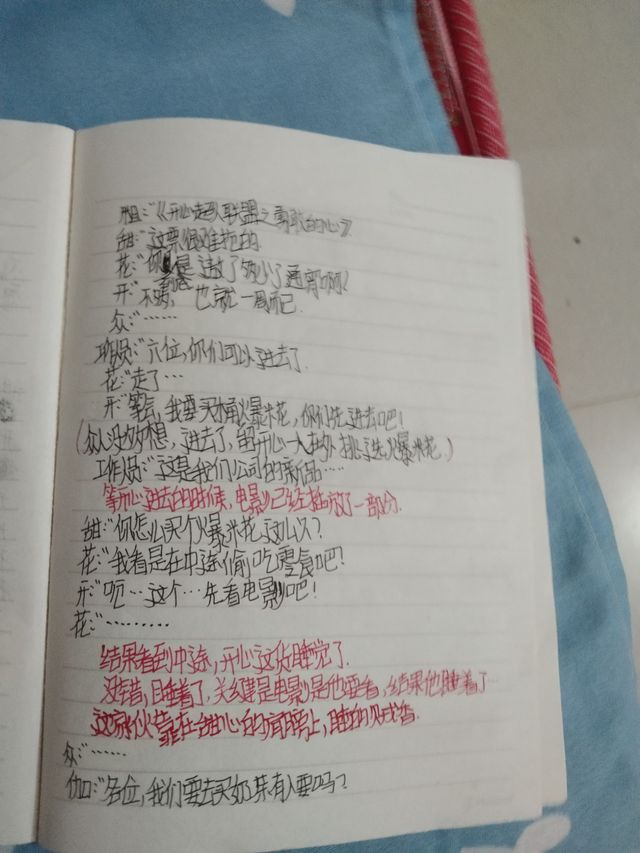 粗:“《开心超人联盟之勇敢的心》
甜:“这票很难抢的
花:“你是透支了多少了通宵啊?
开:“不要,也就一周而已.
众:“……
工作人员:“六位,你们可以进去了.
花:“走了…
开:“等会,我要买桶爆米花,你们先进去吧!
(众人没多想,进去了,留开心一人在外挑选爆米花.)
工作人员:“这是我们公司的新品……
等开心进去的时候,电影已经播放了一部分.
甜:“你怎么买个爆米花这么久?
花:“我看是在中途偷吃零食吧?
开:“呃…这个…先看电影吧!
花:“………
结果看到中途,开心这货睡觉了.
没错,睡着了,关键是电影是他要看,结果他睡着了…
这家伙靠在甜心的肩膀上,睡的贼香.
众:“……
伽:“各位,我们要去买奶茶有人要吗?